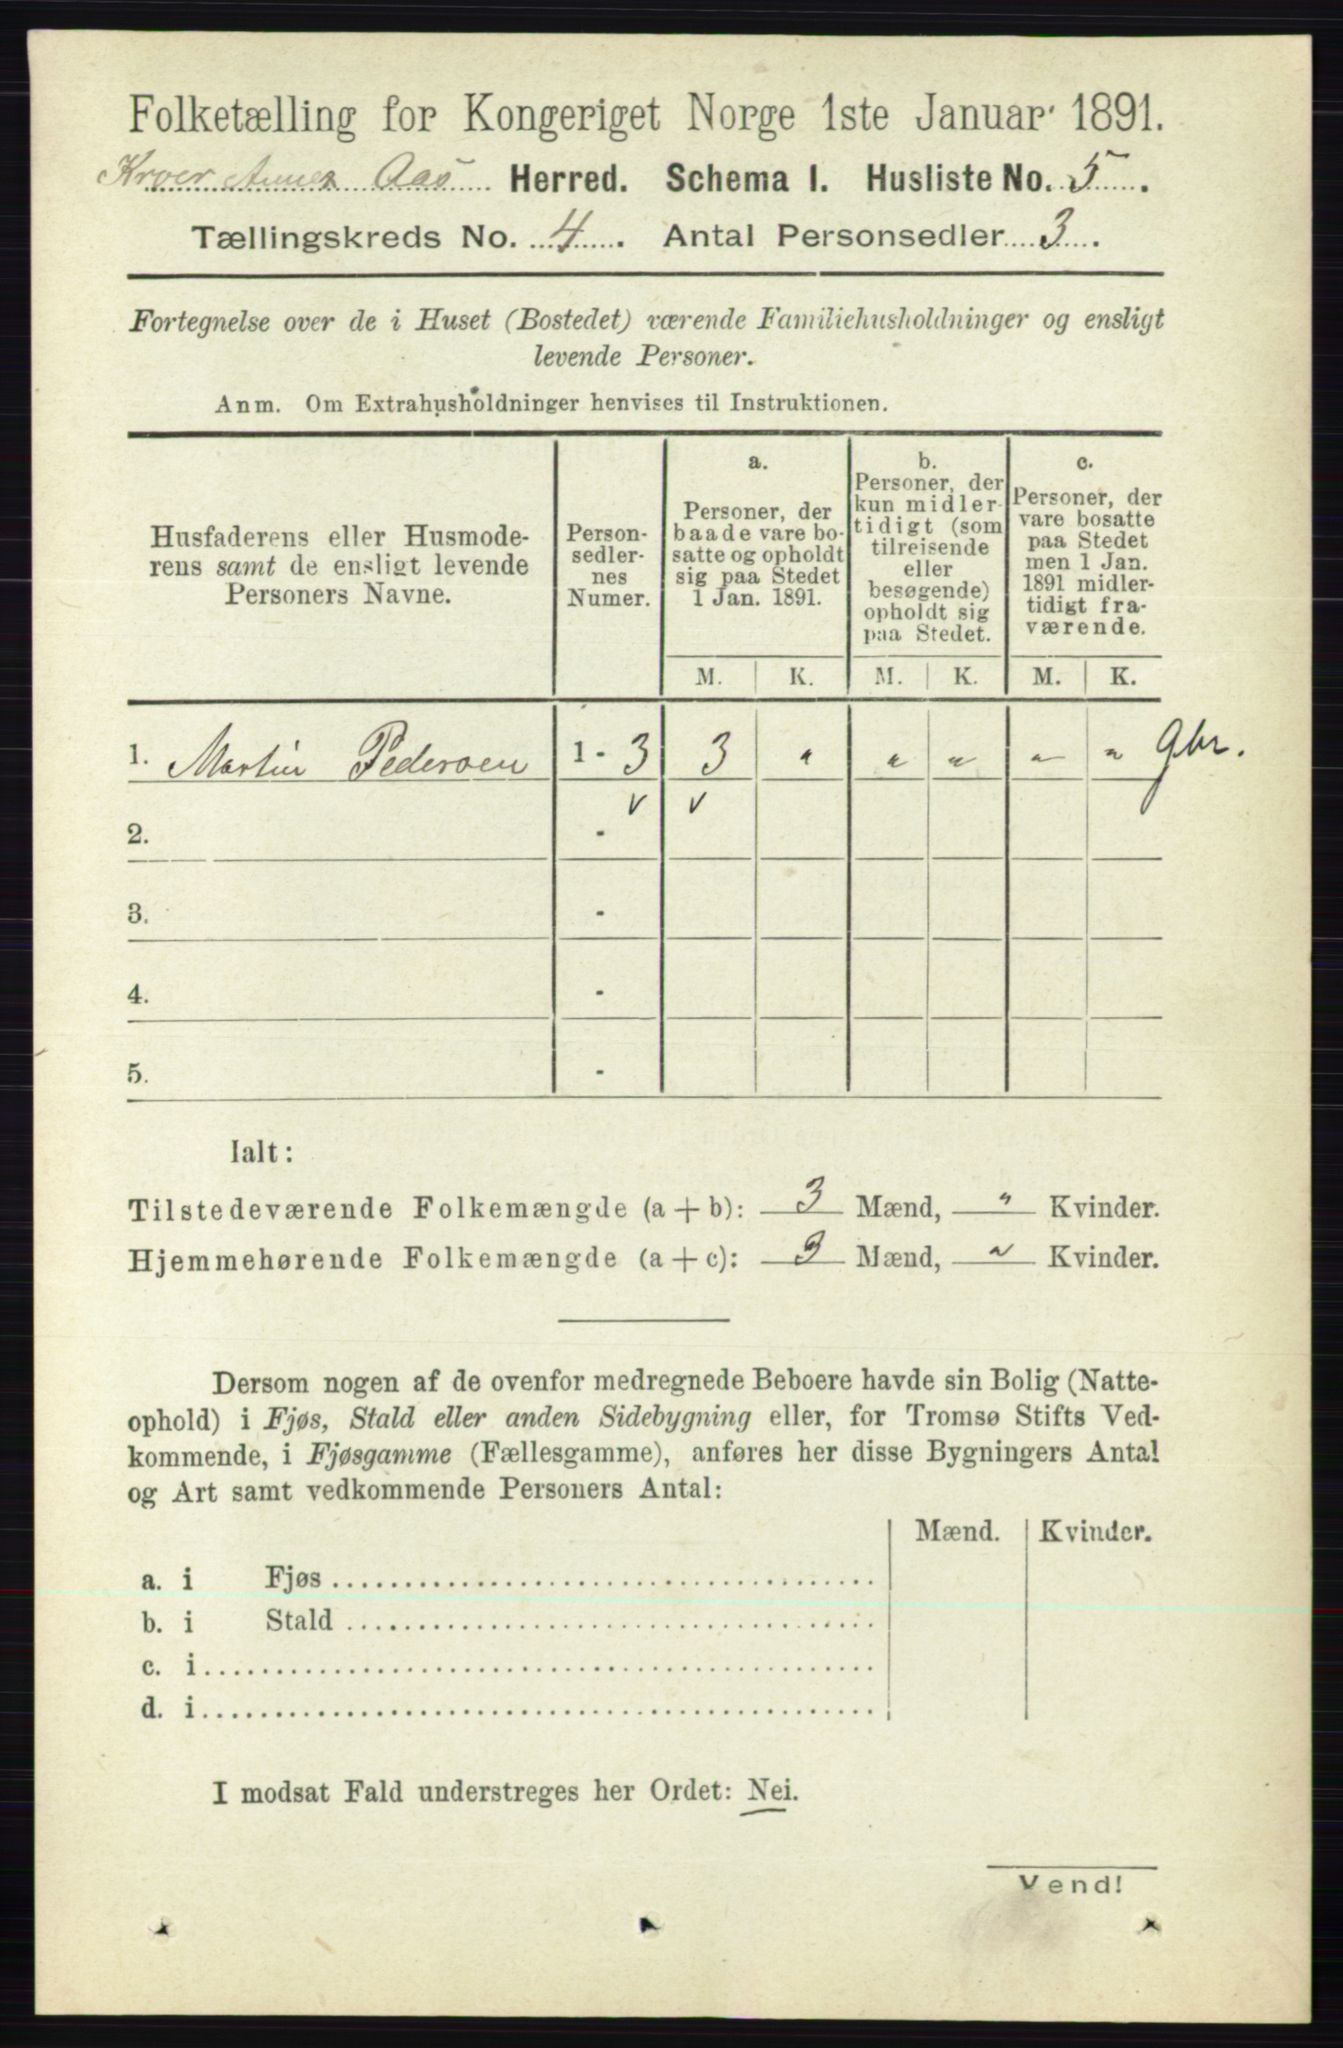 Folketælling for Kongeriget Norge 1ste Januar 1891.
Kroer Annex Aas Herred. Schema I. Husliste No. 5.
Tællingskreds No. 4. Antal Personsedler 3.
Fortegnelse over de i Huset (Bostedet) værende Familiehusholdninger og ensligt
levende Personer.
Anm. Om Extrahusholdninger henvises til Instruktionen.
Husfaderens eller Husmode-
rens samt de ensligt levende
Personers Navne.
Person-
sedler-
nes
Numer.
a.
Personer, der
baade vare bo-
satte og opholdt
sig paa Stedet
1 Jan. 1891.
b.
Personer, der
kun midler-
tidigt (som
tilreisende
eller
besøgende)
opholdt sig
paa Stedet.
c.
Personer, der
vare bosatte
paa Stedet
men 1 Jan.
1891 midler-
tidigt fra-
værende.
M. K. M. K. M. K.
1. Martin Pedersen 1 - 3 3 " " " " " Gbr.
2. - v v
3. -
4. -
5. -
Ialt:
Tilstedeværende Folkemængde (a + b): 3 Mænd, " Kvinder.
Hjemmehørende Folkemængde (a + c): 3 Mænd, " Kvinder.
Dersom nogen af de ovenfor medregnede Beboere havde sin Bolig (Natte-
ophold) i Fjøs, Stald eller anden Sidebygning eller, for Tromsø Stifts Ved-
kommende, i Fjøsgamme (Fællesgamme), anføres her disse Bygningers Antal
og Art samt vedkommende Personers Antal:
Mænd. Kvinder.
a. i Fjøs
b. i Stald
c. i
d. i
I modsat Fald understreges her Ordet: Nei.
Vend!